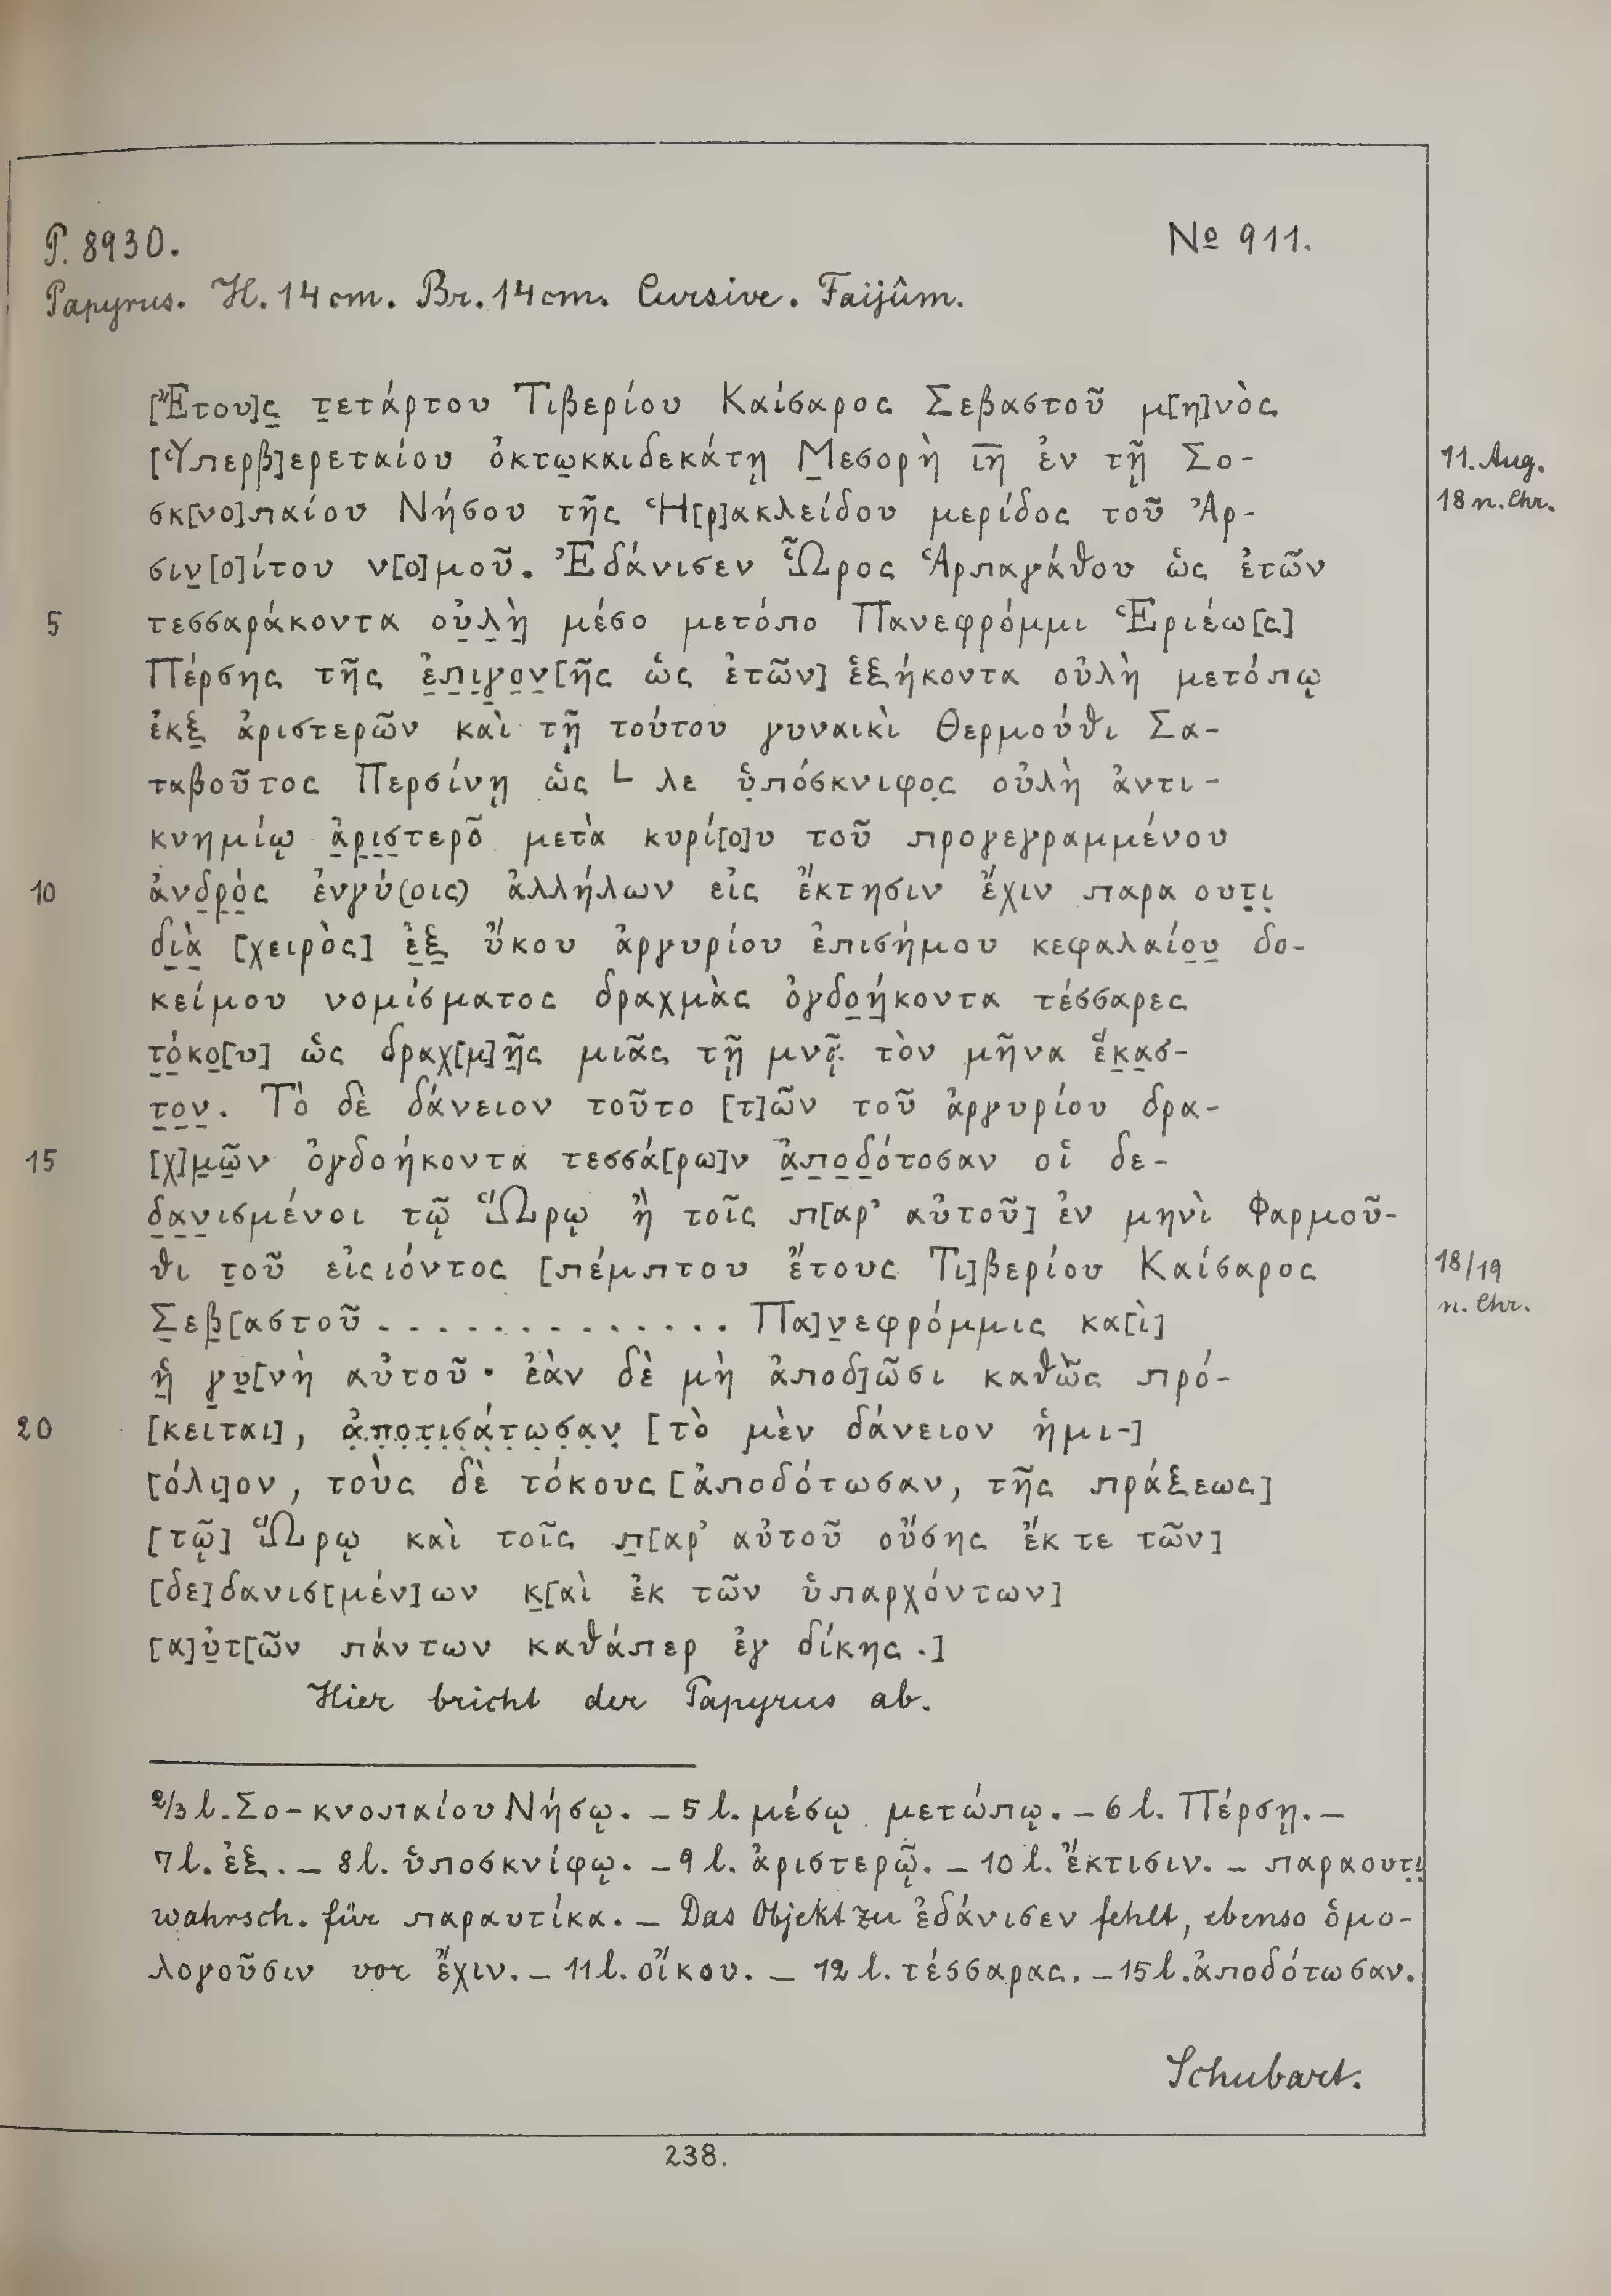 P. 8930. № 911.
Papyrus. H. 14 cm. Br. 14 cm. Cursive. Faijûm.
[Ἔτου]ς̣ τ̣ετάρτου Τιβερίου Καίσαρος Σεβαστοῦ μ[η]νὸς
[Ὑπερβ]ερεταίου ὀκτω̣καιδεκάτῃ Μ̣εσορὴ ι̅η̅ ἐν τῇ Σο-
11. Aug.
18 n. Chr.
σκ[νο]παίου Νήσου τῆς Ἡ[ρ]ακλείδου μερίδος τοῦ Ἀρ-
σιν̣[ο]ίτου ν[ο]μοῦ. Ἐδάνισεν Ὧρος Ἁρπαγάθου ὡς ἐτῶν
5 τεσσαράκοντα οὐ̣λ̣ὴ̣ μέσο μετόπο Πανεφρόμμι Ἑριέω[ς]
Πέρσης τῆς ἐ̣π̣ι̣γ̣ο̣ν̣[ῆς ὡς ἐτῶν] ἑξήκοντα οὐλὴ μετόπῳ
ἐκξ̣ ἀριστερῶν καὶ τῇ τούτου γυναικὶ Θερμούθι Σα-
ταβοῦτος Περσίνῃ ὡς └ λε ὑ̣πόσκνιφο̣ς οὐλὴ ἀντι-
κνημίῳ ἀ̣ρ̣ι̣σ̣τερο͂ μετὰ κυρί[ο]υ τοῦ προγεγραμμένου
10 ἀνδ̣ρ̣ὸ̣ς ἐνγύ(οις) ἀλλήλων εἰς ἔκτησιν ἔχιν παρα ουτ̣ι̣
δι̣ὰ̣ [χειρὸς] ἐ̣ξ̣ ὔκου ἀργυρίου ἐπισήμου κεφαλαίο̣υ̣ δο-
κείμου νομίσματος δραχμὰς ὀγδο̣ή̣κοντα τέσσαρες
τ̣ό̣κο̣[υ] ὡς δραχ[μ]ῆ̣ς μιᾶς τῇ μνᾷ τὸν μῆνα ἕκ̣α̣σ-
τ̣ο̣ν̣. Τὸ δὲ δάνειον τοῦτο [τ]ῶν τοῦ ἀργυρίου δρα-
15 [χ]μ̣ῶ̣ν ὀγδοήκοντα τεσσά[ρω]ν ἀ̣π̣ο̣δ̣ότοσαν οἱ δε-
δ̣α̣ν̣ισμένοι τῷ Ὥρῳ ἢ τοῖς π[αρ’ αὐτοῦ] ἐν μηνὶ Φαρμοῦ-
θι τ̣οῦ εἰςιόντος [πέμπτου ἔτους Τι]βερίου Καίσαρος
18/19
n. Chr.
Σ̣εβ̣[αστοῦ . . . . . . . . . . . . . Πα]ν̣εφρόμμις κα[ὶ]
ἡ̣ γυ̣[νὴ αὐτοῦ · ἐὰν δὲ μὴ ἀποδ]ῶσι καθὼς πρό-
20 [κειται], ἀ̣π̣ο̣τ̣ι̣σ̣ά̣τ̣ω̣σ̣α̣ν̣ [τὸ μὲν δάνειον ἡμι-]
[όλι]ον, τοὺς δὲ τόκους [ἀποδότωσαν, τῆς πράξεως]
[τῷ] Ὥρῳ καὶ τοῖς π̣[αρ’ αὐτοῦ οὔσης ἔκ τε τῶν]
[δε]δανισ[μέν]ων κ̣[αὶ ἐκ τῶν ὑπαρχόντων]
[α]ὐ̣τ[ῶν πάντων καθάπερ ἐγ δίκης.]
Hier bricht der Papyrus ab.
2/3 l. Σο-κνοπαίου Νήσῳ. – 5 l. μέσῳ μετώπῳ. – 6 l. Πέρσῃ. –
7 l. ἐξ. – 8 l. ὑποσκνίφῳ. – 9 l. ἀριστερῷ. – 10 l. ἔκτισιν. – παραουτ̣ι̣
wahrsch. für παραυτίκα. – Das Objekt zu ἐδάνισεν fehlt, ebenso ὁμο-
λογοῦσιν vor ἔχιν. – 11 l. οἴκου. – 12 l. τέσσαρας. – 15 l. ἀποδότωσαν.
Schubart.
238.